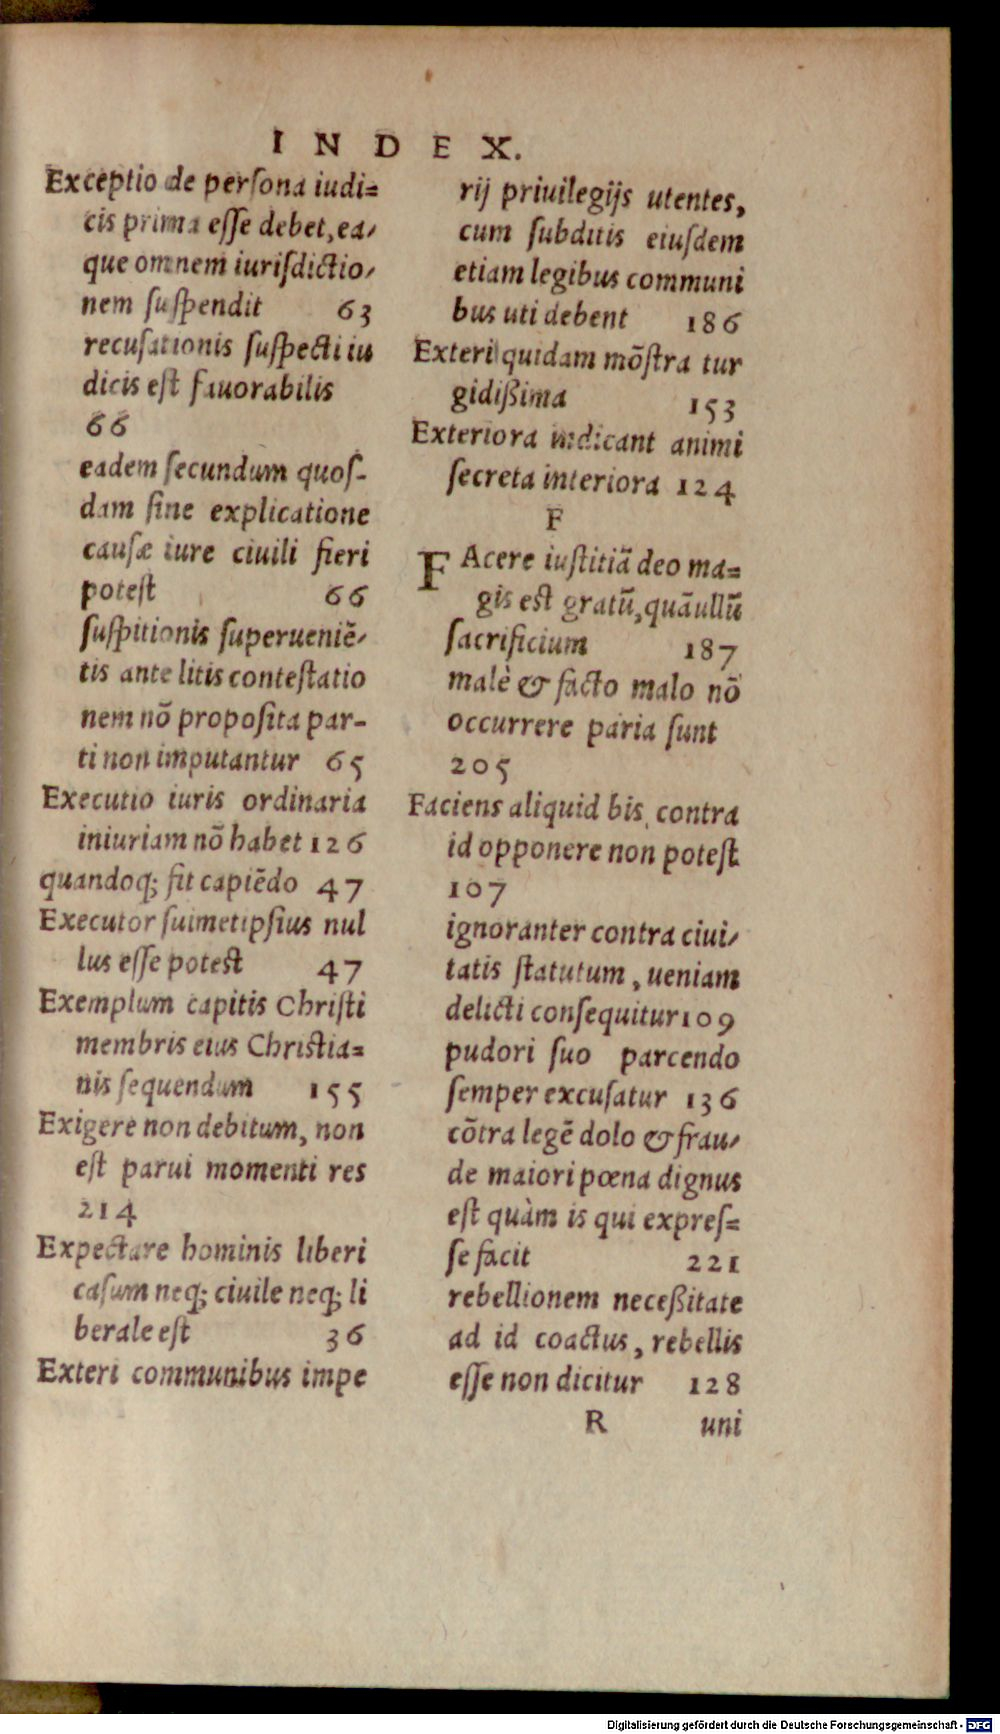 INDEX.
Exceptio de perſona iudi=
cis prima eſſe debet, ea-
que omnem iuriſdictio-
nem ſuſpendit 63
recuſationis ſuſpecti iu
dicis eſt fauorabilis
66
eadem ſecundum quoſ-
dam ſine explicatione
cauſæ iure ciuili fieri
poteſt 66
ſuſpitionis ſuperueniẽ-
tis ante litis conteſtatio
nem nõ propoſita par-
ti non imputantur 65
Executio iuris ordinaria
iniuriam nõ habet 126
quandoq; fit capiẽdo 47
Executor ſuimetipſius nul
lus eſſe poteſt 47
Exemplum capitis Chriſti
membris eius Chriſtia=
nis ſequendum 155
Exigere non debitum, non
eſt parui momenti res
214
Expectare hominis liberi
caſum neq; ciuile neq; li
berale eſt 36
Exteri communibus impe
rij priuilegijs utentes,
cum ſubditis eiuſdem
etiam legibus communi
bus uti debent 186
Exteri quidam mõſtra tur
gidißima 153
Exteriora indicant animi
ſecreta interiora 124
F
FAcere iuſtitiã deo ma=
gis eſt gratũ, quã ullũ
ſacrificium 187
malè & facto malo nõ
occurrere paria ſunt
205
Faciens aliquid bis, contra
id opponere non poteſt
107
ignoranter contra ciui-
tatis ſtatutum, ueniam
delicti conſequitur 109
pudori ſuo parcendo
ſemper excuſatur 136
cõtra legẽ dolo & frau-
de maiori pœna dignus
eſt quàm is qui expreſ=
ſe facit 221
rebellionem neceßitate
ad id coactus, rebellis
eſſe non dicitur 128
R uni
Digitalisierung gefördert durch die Deutsche Forschungsgemeinschaft - DFG